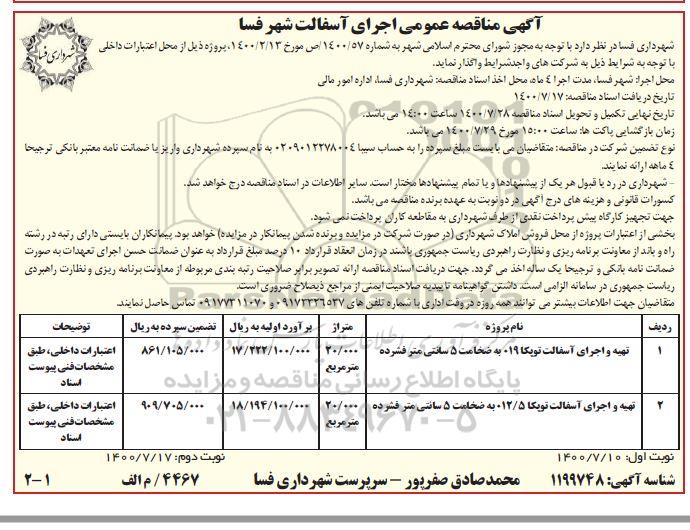 آگهی مناقصه عمومی اجرای آسفالت شهر فسا
شهرداری فسا
شهرداری فسا در نظر دارد با توجه به مجوز شورای محترم اسلامی شهر به شماره ۱۴۰۰/۵۷/ص مورخ ۱۴۰۰/۲/۱۳، پروژه ذیل از محل اعتبارات داخلی
با توجه به شرایط ذیل به شرکت های واجدشرایط واگذار نماید.
محل اجرا: شهر فسا، مدت اجرا ۴ ماه، محل اخذ اسناد مناقصه: شهرداری فسا، اداره امور مالی
تاریخ دریافت اسناد مناقصه: ۱۴۰۰/۷/۱۷
تاریخ نهایی تکمیل و تحویل اسناد مناقصه ۱۴۰۰/۷/۲۸ ساعت ۱۴:۰۰ می باشد.
زمان بازگشایی پاکت ها: ساعت ۱۵:۰۰ مورخ ۱۴۰۰/۷/۲۹ می باشد.
نوع تضمین شرکت در مناقصه: متقاضیان می بایست مبلغ سپرده را به حساب سیبا ۰۲۰۹۰۱۲۲۷۸۰۰۴ به نام سپرده شهرداری واریز یا ضمانت نامه معتبر بانکی ترجیحا
۴ ماهه ارائه نمایند.
- شهرداری در رد یا قبول هر یک از پیشنهادها و یا تمام پیشنهادها مختار است. سایر اطلاعات در اسناد مناقصه درج خواهد شد.
کسورات قانونی و هزینه های درج آگهی در دو نوبت به عهده برنده مناقصه می باشد.
جهت تجهیز کارگاه پیش پرداخت نقدی از طرف شهرداری به مقاطعه کاران پرداخت نمی شود.
بخشی از اعتبارات پروژه از محل فروش املاک شهرداری (در صورت شرکت در مزایده و برنده شدن پیمانکار در مزایده) خواهد بود. پیمانکاران بایستی دارای رتبه در رشته
راه و باند از معاونت برنامه ریزی و نظارت راهبردی ریاست جمهوری باشند در زمان انعقاد قرارداد ۱۰ درصد مبلغ قرارداد به عنوان ضمانت حسن اجرای تعهدات به صورت
ضمانت نامه بانکی و ترجیحا یک ساله اخذ می گردد. جهت دریافت اسناد مناقصه ارائه تصویر برابر صلاحیت رتبه بندی مربوطه از معاونت برنامه ریزی و نظارت راهبردی
ریاست جمهوری در سامانه الزامی است. داشتن گواهینامه تایید صلاحیت ایمنی از مراجع ذیصلاح ضروری است.
متقاضیان جهت اطلاعات بیشتر می توانند همه روزه در وقت اداری با شماره تلفن های ۰۹۱۷۳۳۳۶۵۳۷ و ۰۹۱۷۷۳۱۱۰۷۰ تماس حاصل نمایند.
ردیف نام پروژه متراژ برآورد اولیه به ریال تضمین سپرده به ریال توضیحات
۱ تهیه و اجرای آسفالت توپکا ۰۱۹ به ضخامت ۵ سانتی متر فشرده ۲۰/۰۰۰ مترمربع ۱۷/۲۲۲/۱۰۰/۰۰۰ ۸۶۱/۱۰۵/۰۰۰ اعتبارات داخلی، طبق مشخصات فنی پیوست اسناد
۲ تهیه و اجرای آسفالت توپکا ۰۱۲/۵ به ضخامت ۵ سانتی متر فشرده ۲۰/۰۰۰ مترمربع ۱۸/۱۹۴/۱۰۰/۰۰۰ ۹۰۹/۷۰۵/۰۰۰ اعتبارات داخلی، طبق مشخصات فنی پیوست اسناد
پایگاه اطلاع رسانی مناقصه و مزایده
۰۲۱-۸۸۳۴۹۶۷۰-۵
نوبت اول: ۱۴۰۰/۷/۱۰ نوبت دوم: ۱۴۰۰/۷/۱۷
شناسه آگهی: ۱۱۹۹۷۴۸ محمدصادق صفرپور - سرپرست شهرداری فسا ۴۴۶۷ / م الف ۲-۱